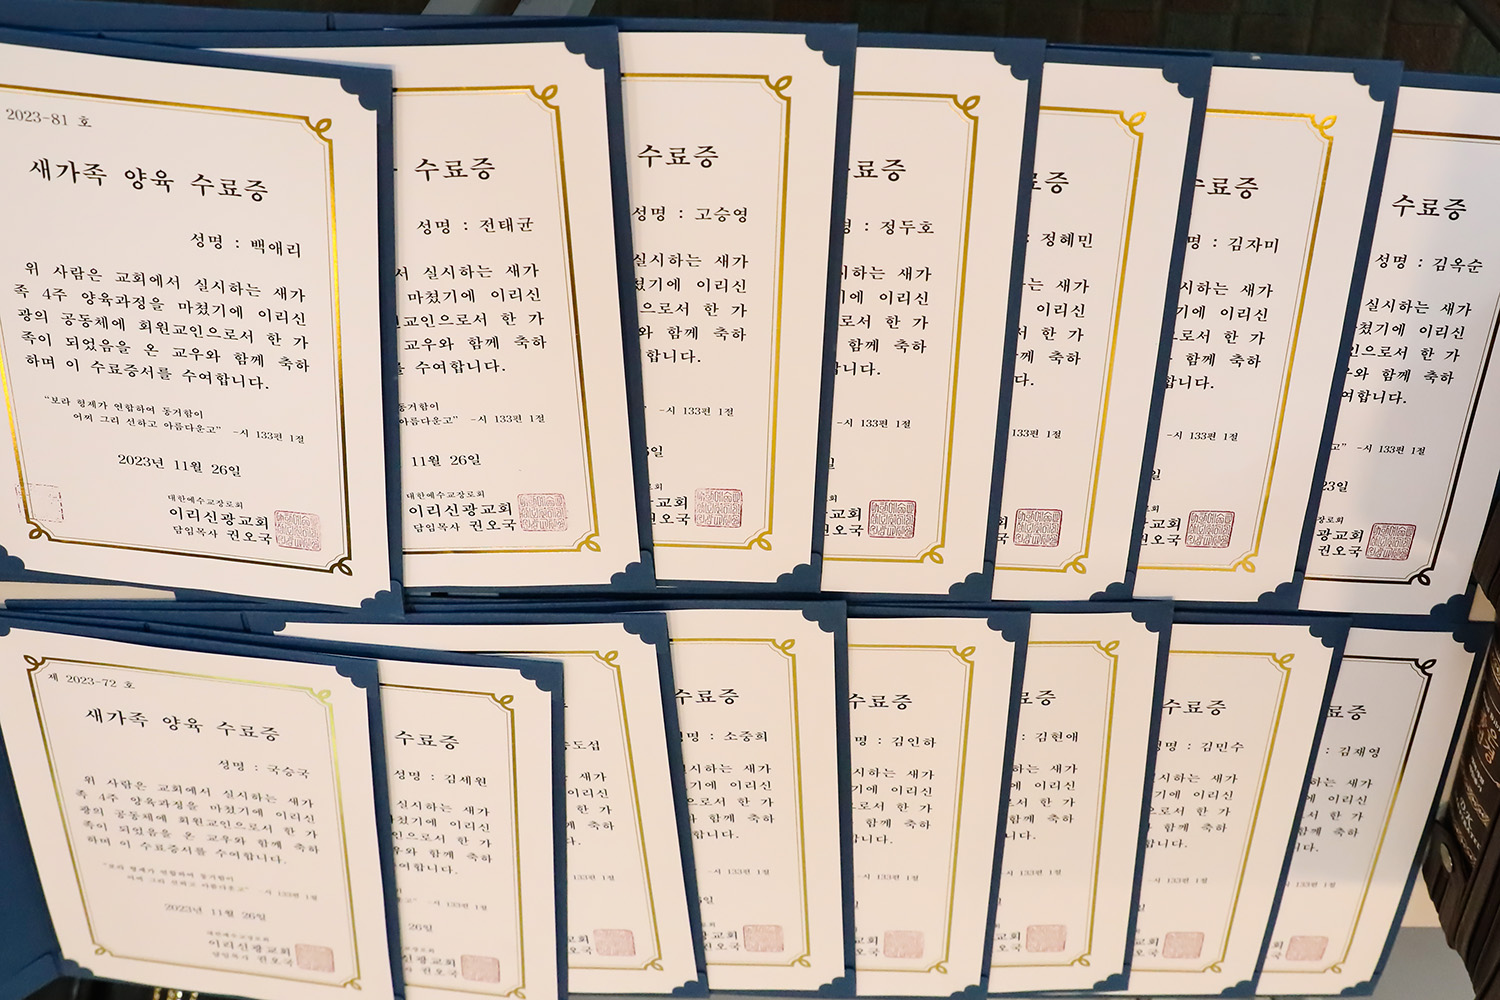 2023-81 호
새가족 양육 수료증
성명 : 백애리
위 사람은 교회에서 실시하는 새가
족 4주 양육과정을 마쳤기에 이리신
광의 공동체에 회원교인으로서 한 가
족이 되었음을 온 교우와 함께 축하
하며 이 수료증서를 수여합니다.
"보라 형제가 연합하여 동거함이
어찌 그리 선하고 아름다운고" -시 133편 1절
2023년 11월 26일
대한예수교장로회
이리신광교회
담임목사 권오국
수료증
성명 : 전태균
서 실시하는 새가
마쳤기에 이리신
교인으로서 한 가
교우와 함께 축하
를 수여합니다.
동거함이
아름다운고" -시 133편 1절
11월 26일
대한예수교장로회
이리신광교회
담임목사 권오국
수료증
성명 : 고승영
실시하는 새가
쳤기에 이리신
으로서 한 가
와 함께 축하
합니다.
-시 133편 1절
6일
로회
광교회
권오국
료증
명 : 정두호
시하는 새가
기에 이리신
로서 한 가
함께 축하
니다.
-시 133편 1절
일
회
교회
오국
료증
: 정혜민
는 새가
이리신
한 가
함께 축하
다.
133편 1절
회
국
수료증
명 : 김자미
시하는 새가
기에 이리신
로서 한 가
함께 축하
합니다.
-시 133편 1절
일
로회
교회
권오국
수료증
성명 : 김옥순
실시하는 새가
쳤기에 이리신
인으로서 한 가
우와 함께 축하
여합니다.
고" -시 133편 1절
23일
장로회
광교회
권오국
제 2023-72 호
새가족 양육 수료증
성명 : 국승국
위 사람은 교회에서 실시하는 새가
족 4주 양육과정을 마쳤기에 이리신
광의 공동체에 회원교인으로서 한 가
족이 되었음을 온 교우와 함께 축하
하며 이 수료증서를 수여합니다.
"보라 형제가 연합하여 동거함이
어찌 그리 선하고 아름다운고" -시 133편 1절
2023년 11월 26일
대한예수교장로회
이리신광교회
담임목사 권오국
수료증
성명 : 김세원
실시하는 새가
쳤기에 이리신
인으로서 한 가
우와 함께 축하
여합니다.
-시 133편 1절
26일
장로회
신광교회
권오국
도섭
새가
이리신
한 가
께 축하
다.
133편 1절
교회
오국
수료증
명 : 소중희
실시하는 새가
기에 이리신
으로서 한 가
와 함께 축하
합니다.
-시 133편 1절
일
로회
광교회
권오국
수료증
명 : 김인하
시하는 새가
기에 이리신
로서 한 가
함께 축하
니다.
-시 133편 1절
일
회
교회
오국
료증
: 김현애
하는 새가
에 이리신
서 한 가
함께 축하
니다.
133편 1절
회
국
수료증
성명 : 김민수
시하는 새가
기에 이리신
로서 한 가
함께 축하
합니다.
-시 133편 1절
일
로회
교회
오국
료증
: 김재영
하는 새가
에 이리신
서 한 가
함께 축하
니다.
133편 1절
회
국